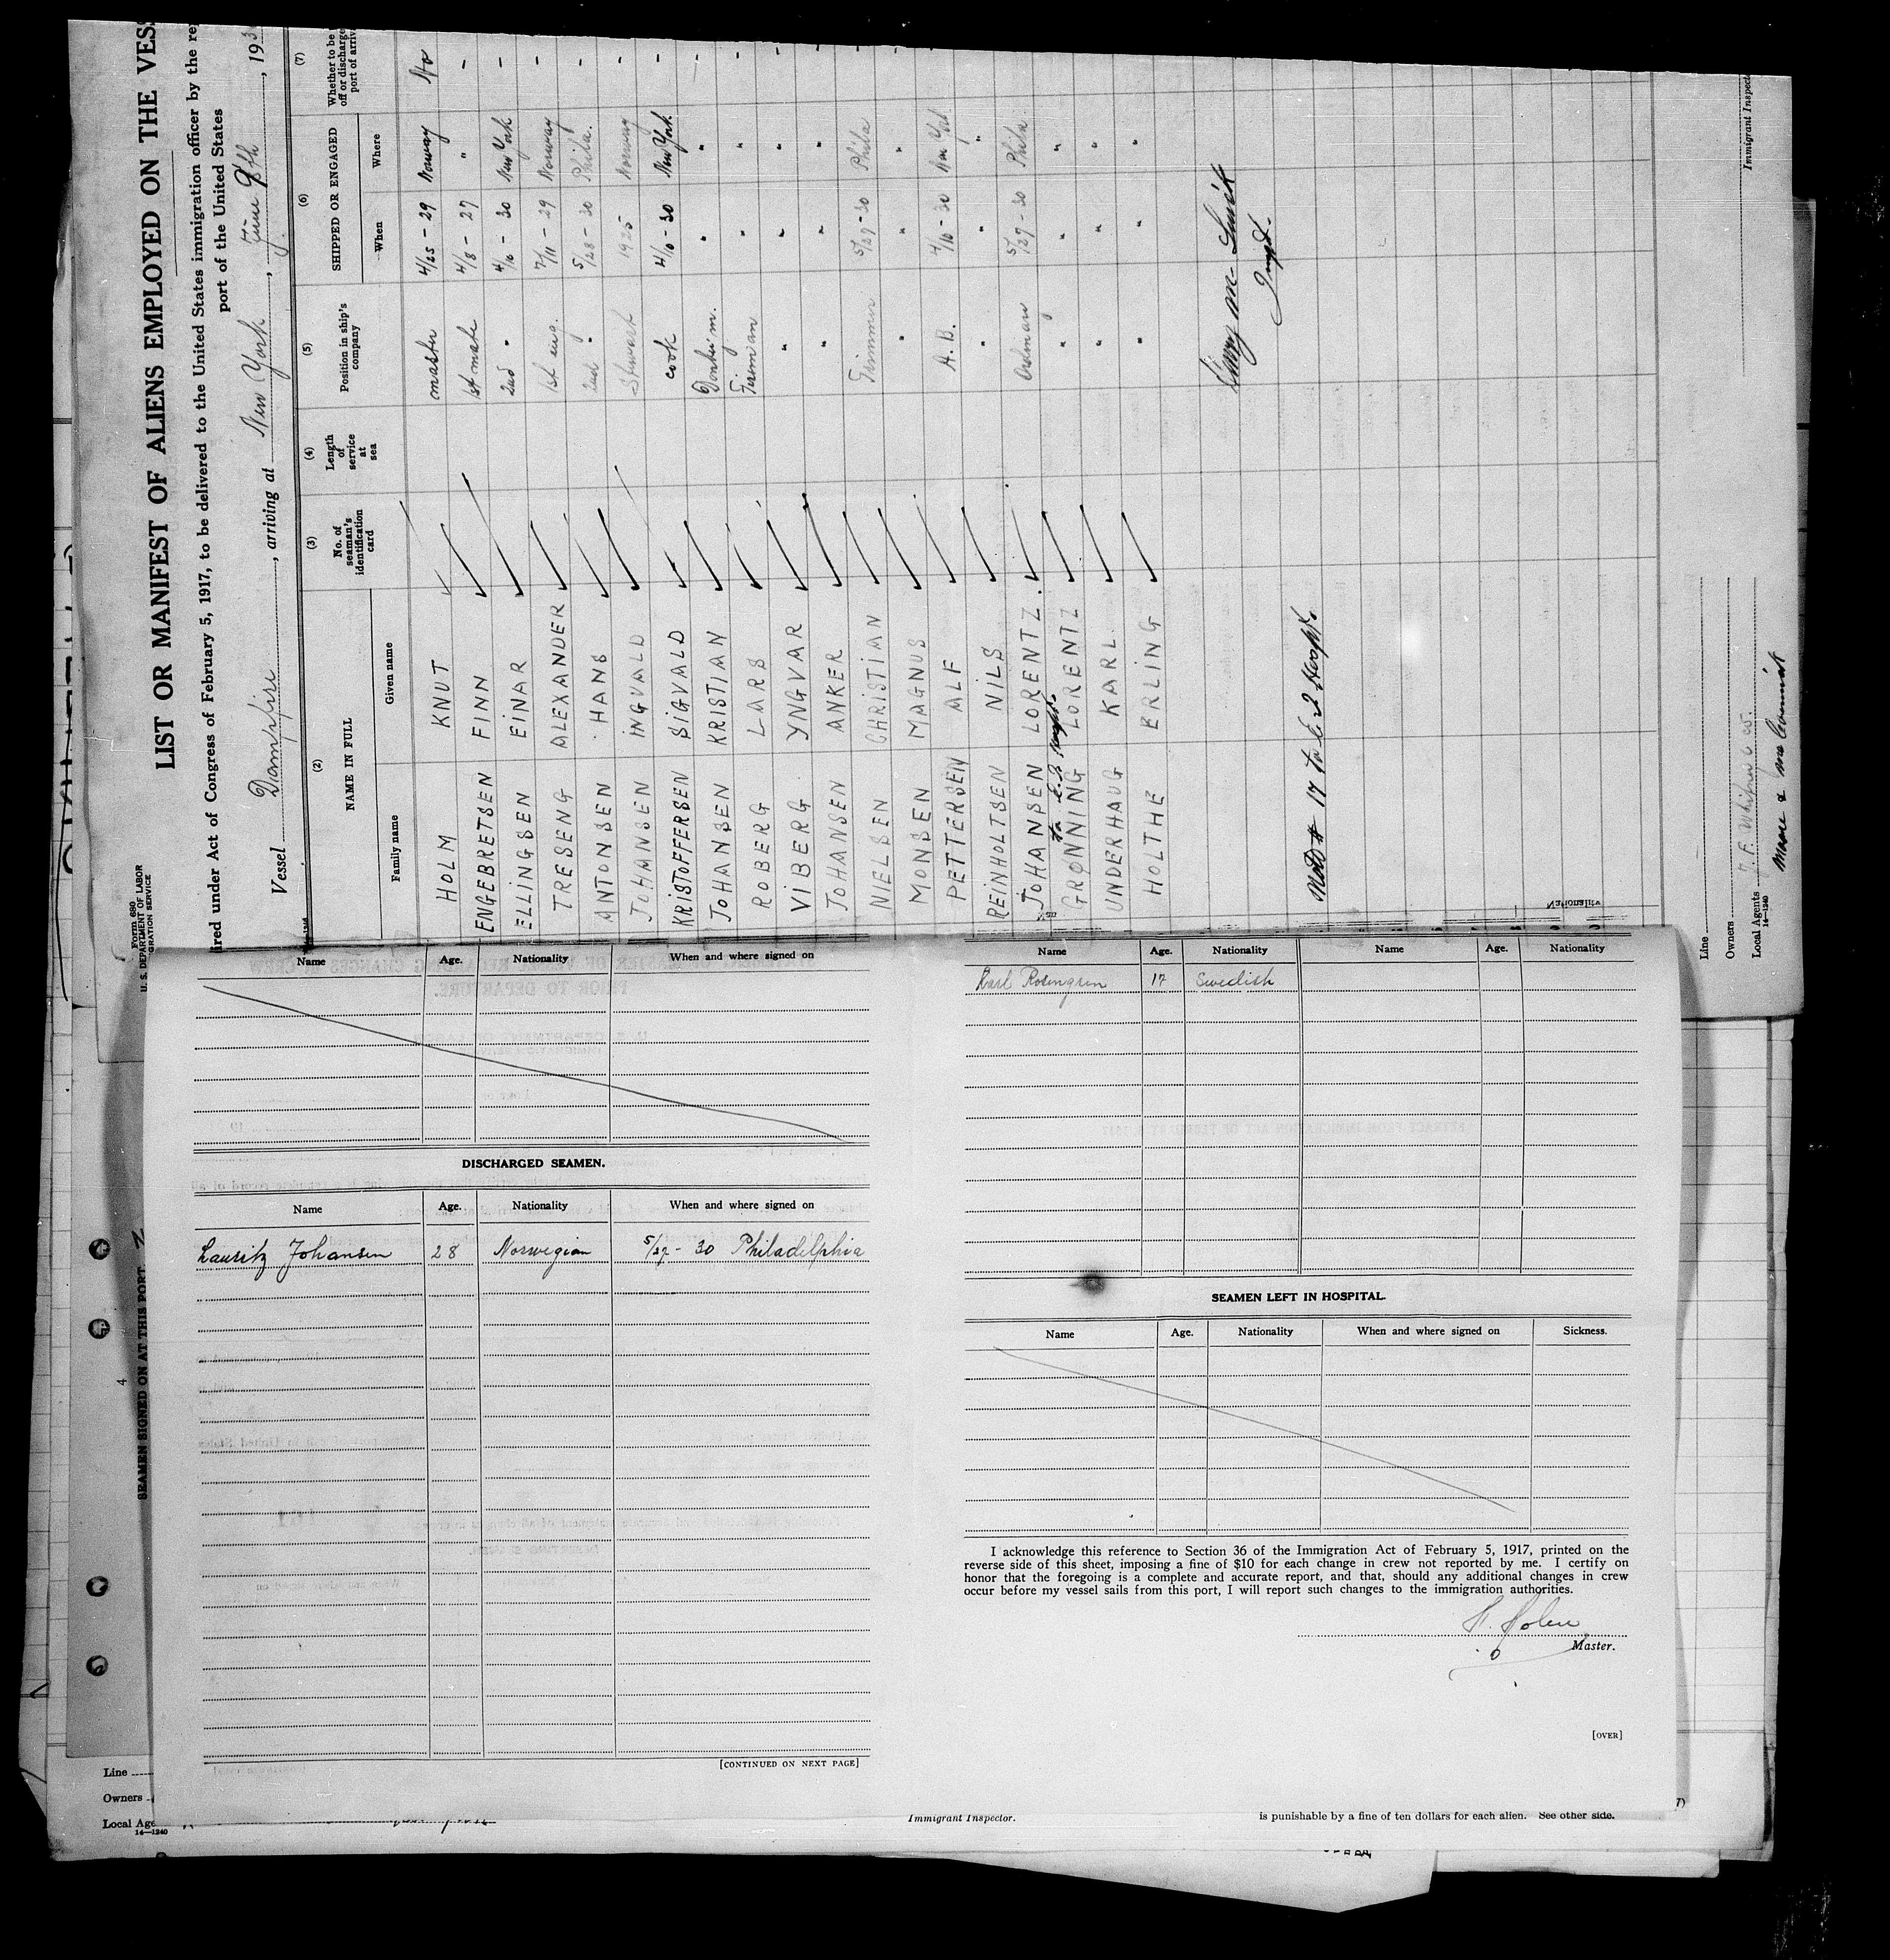 LIST OR MANIFEST OF ALIENS EMPLOYED ON THE VES
ired under Act of Congress of February 5, 1917, to be delivered to the United States immigration officer by the re
port of the United States
Form 680
U. S. DEPARTMENT OF LABOR
GRATION SERVICE
Vessel , arriving at New York , June 9th , 193
(2) (3) (4) (5) (6) (7)
NAME IN FULL
No. of seaman's identification card
Length of service at sea
Position in ship's company
SHIPPED OR ENGAGED
Whether to be
off or discharge
port of arriv
Family name Given name When Where
HOLM KNUT master 4/25 - 29 Norway No
ENGEBRETSEN FINN 1st mate 4/8 - 27 " -
ELLINGSEN EINAR 2nd " 4/16 - 30 New York -
TRESENG ALEXANDER 1st eng. 7/11 - 29 Norway -
ANTONSEN HANS 2nd " 5/28 - 30 Phila. -
JOHANSEN INGVALD Stewart 1925 Norway -
KRISTOFFERSEN SIGVALD cook 4/10 - 30 New York -
JOHANSEN KRISTIAN " " -
ROBERG LARS Fireman " " -
VIBERG YNGVAR " " " -
JOHANSEN ANKER " " " -
NIELSEN CHRISTIAN Trimmer 5/27 - 30 Phila -
MONSEN MAGNUS " " " -
PETTERSEN ALF A.B. 4/10 - 30 New York -
REINHOLTSEN NILS " " " -
JOHANSEN LORENTZ Ordman 5/27 - 30 Phila
GRØNNING LORENTZ " " "
UNDERHAUG KARL " " "
HOLTHE ERLING " " "
17
Nationality
Immigrant Inspect
Line
Owners
Local Agents
14—1240
4
SEAMEN SIGNED ON AT THIS PORT.
Name Age. Nationality When and where signed on
DISCHARGED SEAMEN.
Name Age. Nationality When and where signed on
Lauritz Johansen 28 Norwegian 5/27 - 30 Philadelphia
[CONTINUED ON NEXT PAGE]
Name Age. Nationality Name Age. Nationality
Karl Rosengren 17 Swedish
SEAMEN LEFT IN HOSPITAL.
Name Age. Nationality When and where signed on Sickness.
I acknowledge this reference to Section 36 of the Immigration Act of February 5, 1917, printed on the
reverse side of this sheet, imposing a fine of $10 for each change in crew not reported by me. I certify on
honor that the foregoing is a complete and accurate report, and that, should any additional changes in crew
occur before my vessel sails from this port, I will report such changes to the immigration authorities.
K. Holm
Master.
[OVER]
Line
Owners
Local Age
14—1240
Immigrant Inspector.
is punishable by a fine of ten dollars for each alien. See other side.